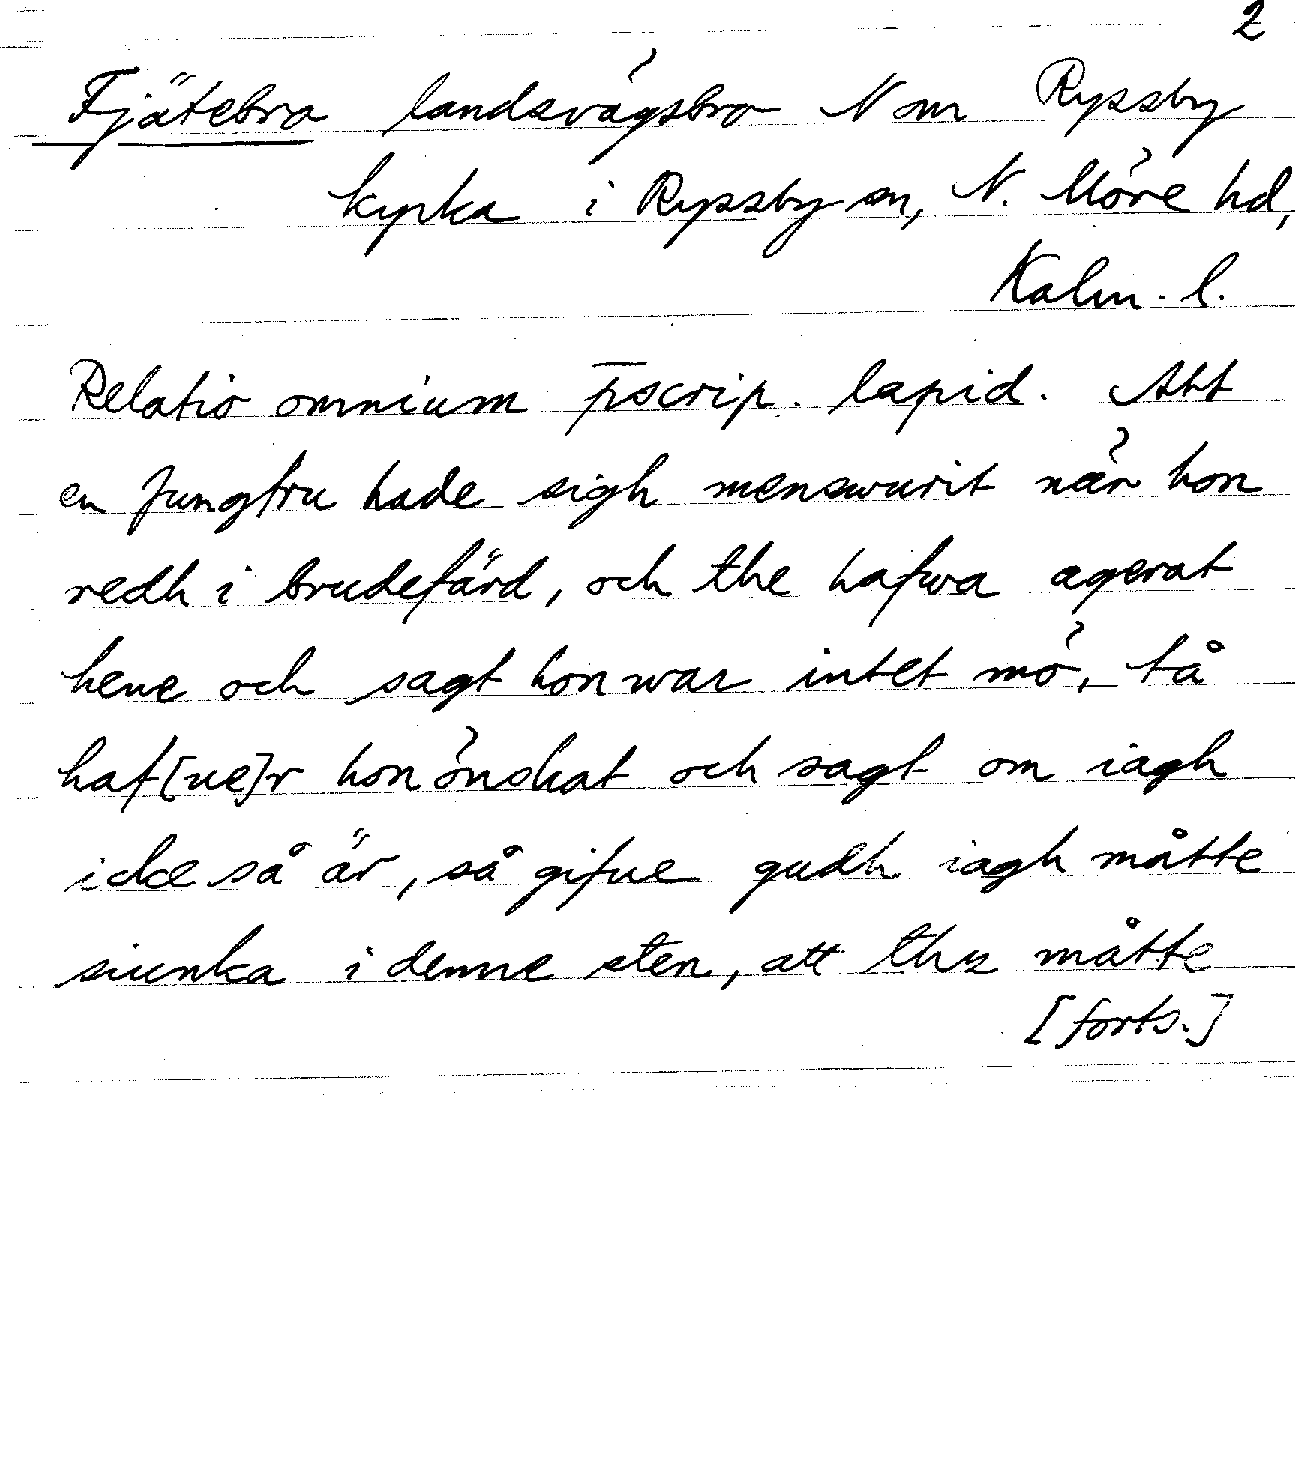 2
Fjätebro landsvägsbro N om Ryssby
kyrka i Ryssby sn, N. Möre hd,
Kalm. l.
Relatio omnium p̄scrip. lapid. Att
en Jungfru hade sigh menswurit när hon
redh i brudefärd, och the hafwa agerat
hene och sagt hon war intet mö, tå
haf[ue]r hon önskat och sagt om iagh
icke så är, så gifue gudh iagh måtte
siunka i denne sten, att thz måtte
[forts.]